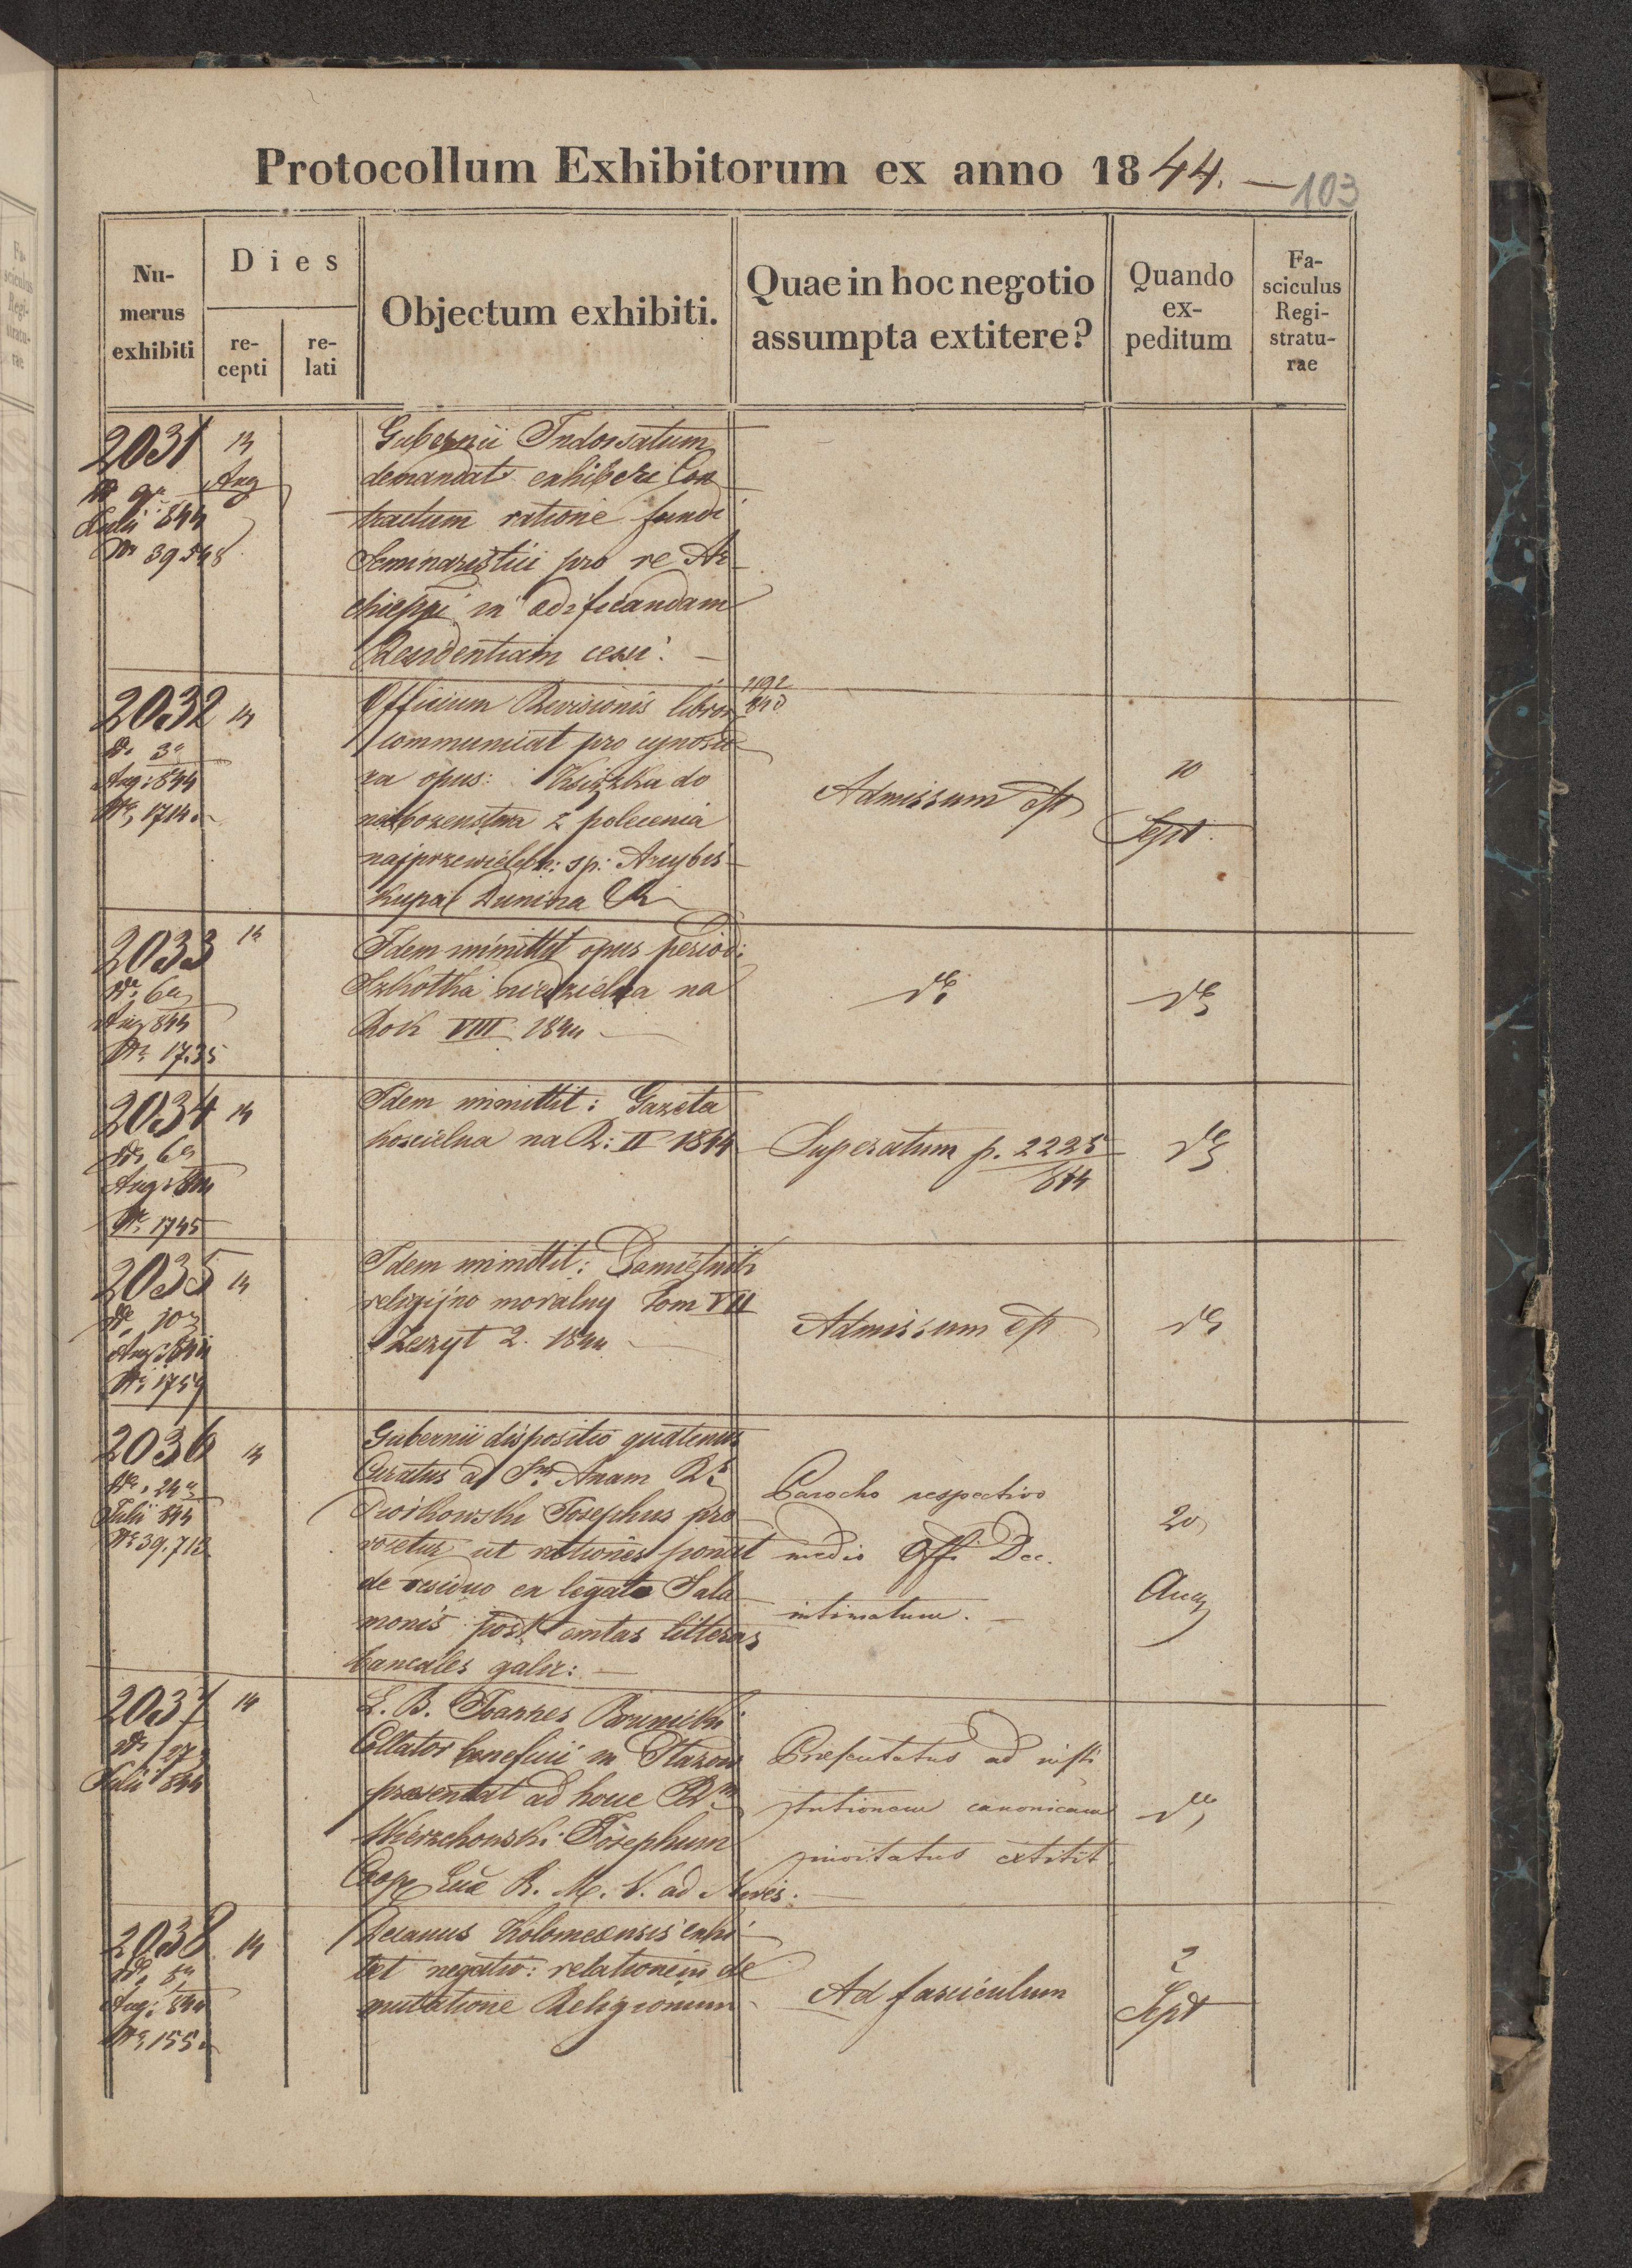 Protocollum Exhibitorum ex anno 1844. —
103
Nu-
merus
exhibiti
Dies
re-
cepti
re-
lati
Objectum exhibiti.
Quae in hoc negotio
assumpta extitere?
Quando
ex-
peditum
Fa-
sciculus
Regi-
stratu-
rae
2031
14
Aug
Julii 844
Nr 39548
Gubernii Indorsatum
demandat exhiberi Con
tractum ratione fundi
Seminaristici pro re Ar
chieppi in ædificandam
Residentiam cessi. —
2032
14
dto 3a
Aug: 844
Nr 1714
Officium Revisionis libror
communicat pro cynosu
ra opus: Książka do
nabożenstwa z polecenia
najprzewielebn: sp: Arcybis
kupa Dunina
2192
843
Admissum est
10
Sept.
2033
14
dto 6a
Aug 844
Nr 1735
Idem inmittit opus period:
Szkółka niedzielna na
Rok VIII 1844 —
dto
dto
2034
14
dto 6a
Aug: 844
Nr 1745
Idem inmittit: Gazeta
koscielna na R: II 1844
Superatum p. 2225
844
dto
2035
14
dto 10
Aug: 844
Nr 1759
Idem inmittit: Pamiętnik
religijno moralny Tom VII
Zeszyt 2. 1844 —
Admissum est
dto
2036
14
dto 24a
Julii 844
Nr 39.712
Gubernii dispositio quatenus
Curatus ad Sm Anam Rs
Piotkowski Josephus pro
vocetur, ut rationes ponat
de residuo ex legato Sala
monis post emtas litteras
bancales galic: —
Parocho respectivo
medio Offi Dec.
intimatum. —
20
Aug
2037
14
dto 27
Julii 844
L. B. Joannes Brunicki
Collator beneficii in
præsentat ad hocce Rm
Wierzchowski Josephum
Coop Eccl B. M. V. ad Nives. —
Præsentatus ad insti
tutionem canonicam
invitatus extitit.
dto
2038
14
dto 8a
Aug: 844
Nr 155
Decanus Kolomeensis exhi
bet negativ: relationem de
mutatione Religionum
Ad fasciculum
2
Sept